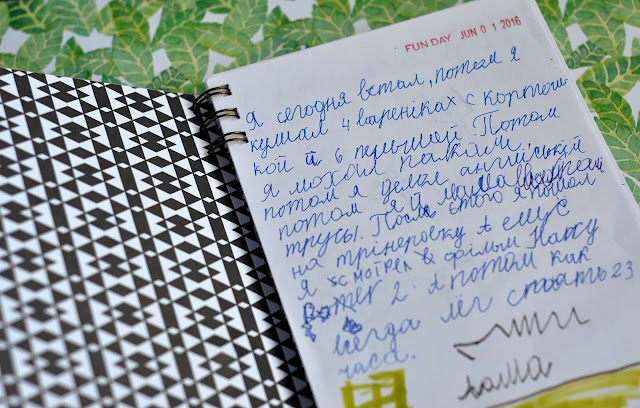 FUN DAY JUN 0 1 2016
Я сегодня встал, потом я
кушал 4 варениках с картош-
кой й 6 Потом
я махал палкой,
потом я делал англійскій
потом я й мама
трусы. После этого я пошол
на трінеровку А ещё
я смотрел фільм
2. А потом как
всегда лёг спать 23
часа.